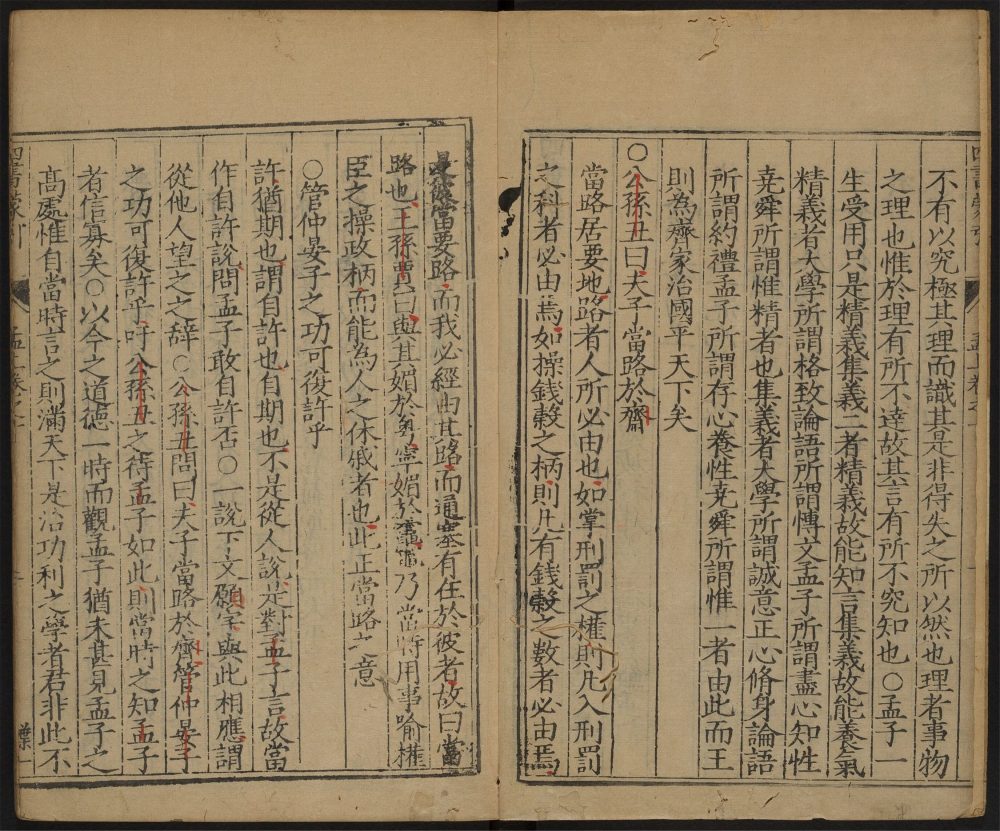 不有以究極其理而識其是非得失之所以然也理者事物
之理也惟於理有所不達故其言有所不究知也○孟子一
生受用只是精義集義二者精義故能知言集義故能養氣
精義者大學所謂格致論語所謂慱文孟子所謂盡心知性
尭舜所謂惟精者也集義者大學所謂誠意正心脩身論語
所謂約禮孟子所謂存心養性尭舜所謂惟一者由此而王
則為齊家治國平天下矣
○公孫丑曰夫子當路於齊
當路居要地路者人所必由也如掌刑罰之權則凡入刑罰
之科者必由焉如操錢穀之柄則凡有錢穀之數者必由焉
當要路而我必經由其路而通塞有任於彼者故曰當
路也王孫賈曰與其媚於奧寧媚於竈竈乃當時用事喻權
臣之操政柄而能為人之休戚者也此正當路之意
○管仲晏子之功可復許乎
許猶期也謂自許也自期也不是從人說是對孟子言故當
作自許說問孟子敢自許否○一說下文願字與此相應謂
從他人望之之辞○公孫丑問曰夫子當路於齊管仲晏子
之功可復許乎吁公孫丑之待孟子如此則當時之知孟子
者信寡矣○以今之道德一時而觀孟子猶未甚見孟子之
髙處惟自當時言之則滿天下是治功利之學者君非此不
四書蒙引
孟子卷之
葉一